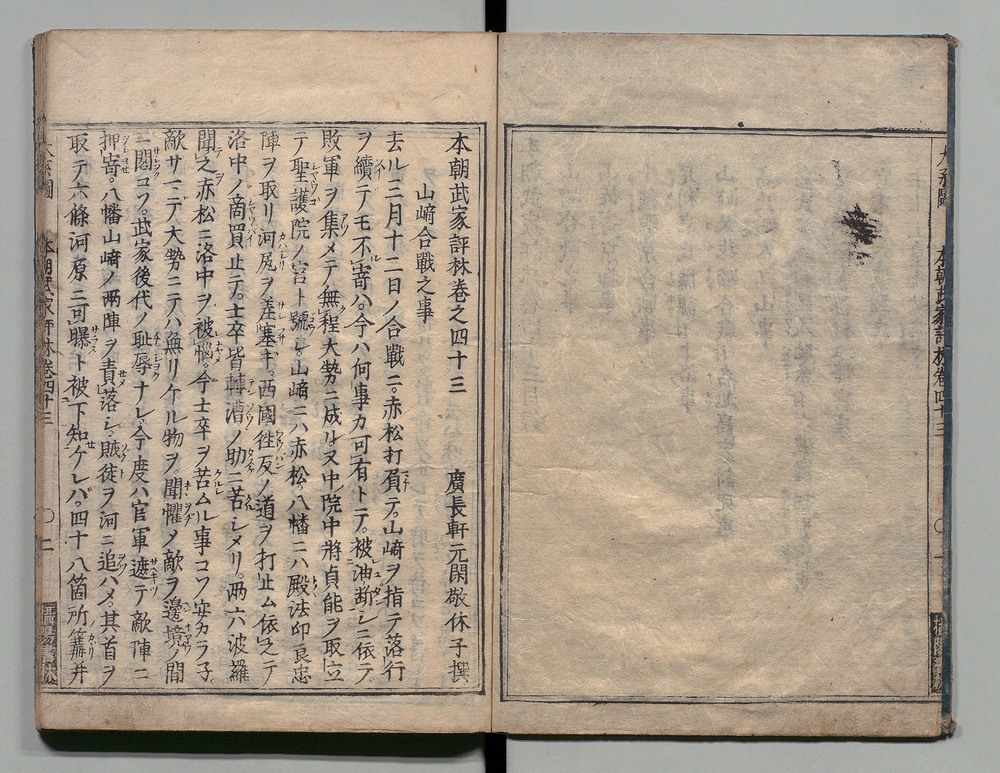 本朝武家評林卷之四十三　廣長軒元閑敬休子撰
山﨑合戰之事
去ル三月十二日ノ合戰ニ。赤松打負テ。山﨑ヲ指テ落行
ヲ續テモ不寄ハ。今ハ何事カ可有トテ。被油断シニ依テ。
敗軍ヲ集メテ無程大勢ニ成ル。又中院中將貞能ヲ取立
テ聖護院ノ宮ト號シ。山﨑ニハ赤松。八幡ニハ殿法印良忠
陣ヲ取リ河尻ヲ差塞ギ。西國徃反ノ道ヲ打止ム依之テ
洛中ノ商買止テ。士卒皆轉漕ノ助ニ苦シメリ。兩六波羅
聞之赤松ニ洛中ヲ被惱。今士卒ヲ苦ムル事コソ安カラ子。
敵サマデ大勢ニテハ無リケル物ヲ。聞懼ノ敵ヲ邊境ノ間
ニ閣コソ。武家後代ノ耻辱ナレ。今度ハ官軍遮テ敵陣ニ
押寄。八幡山﨑ノ兩陣ヲ責落シ。賊徒ヲ河ニ追ハメ。其首ヲ
取テ六條河原ニ可曝ト被下知ケレバ。四十八箇所篝并
本朝武家評林卷四十三　〇　二
本朝武家評林卷四十三　〇　一